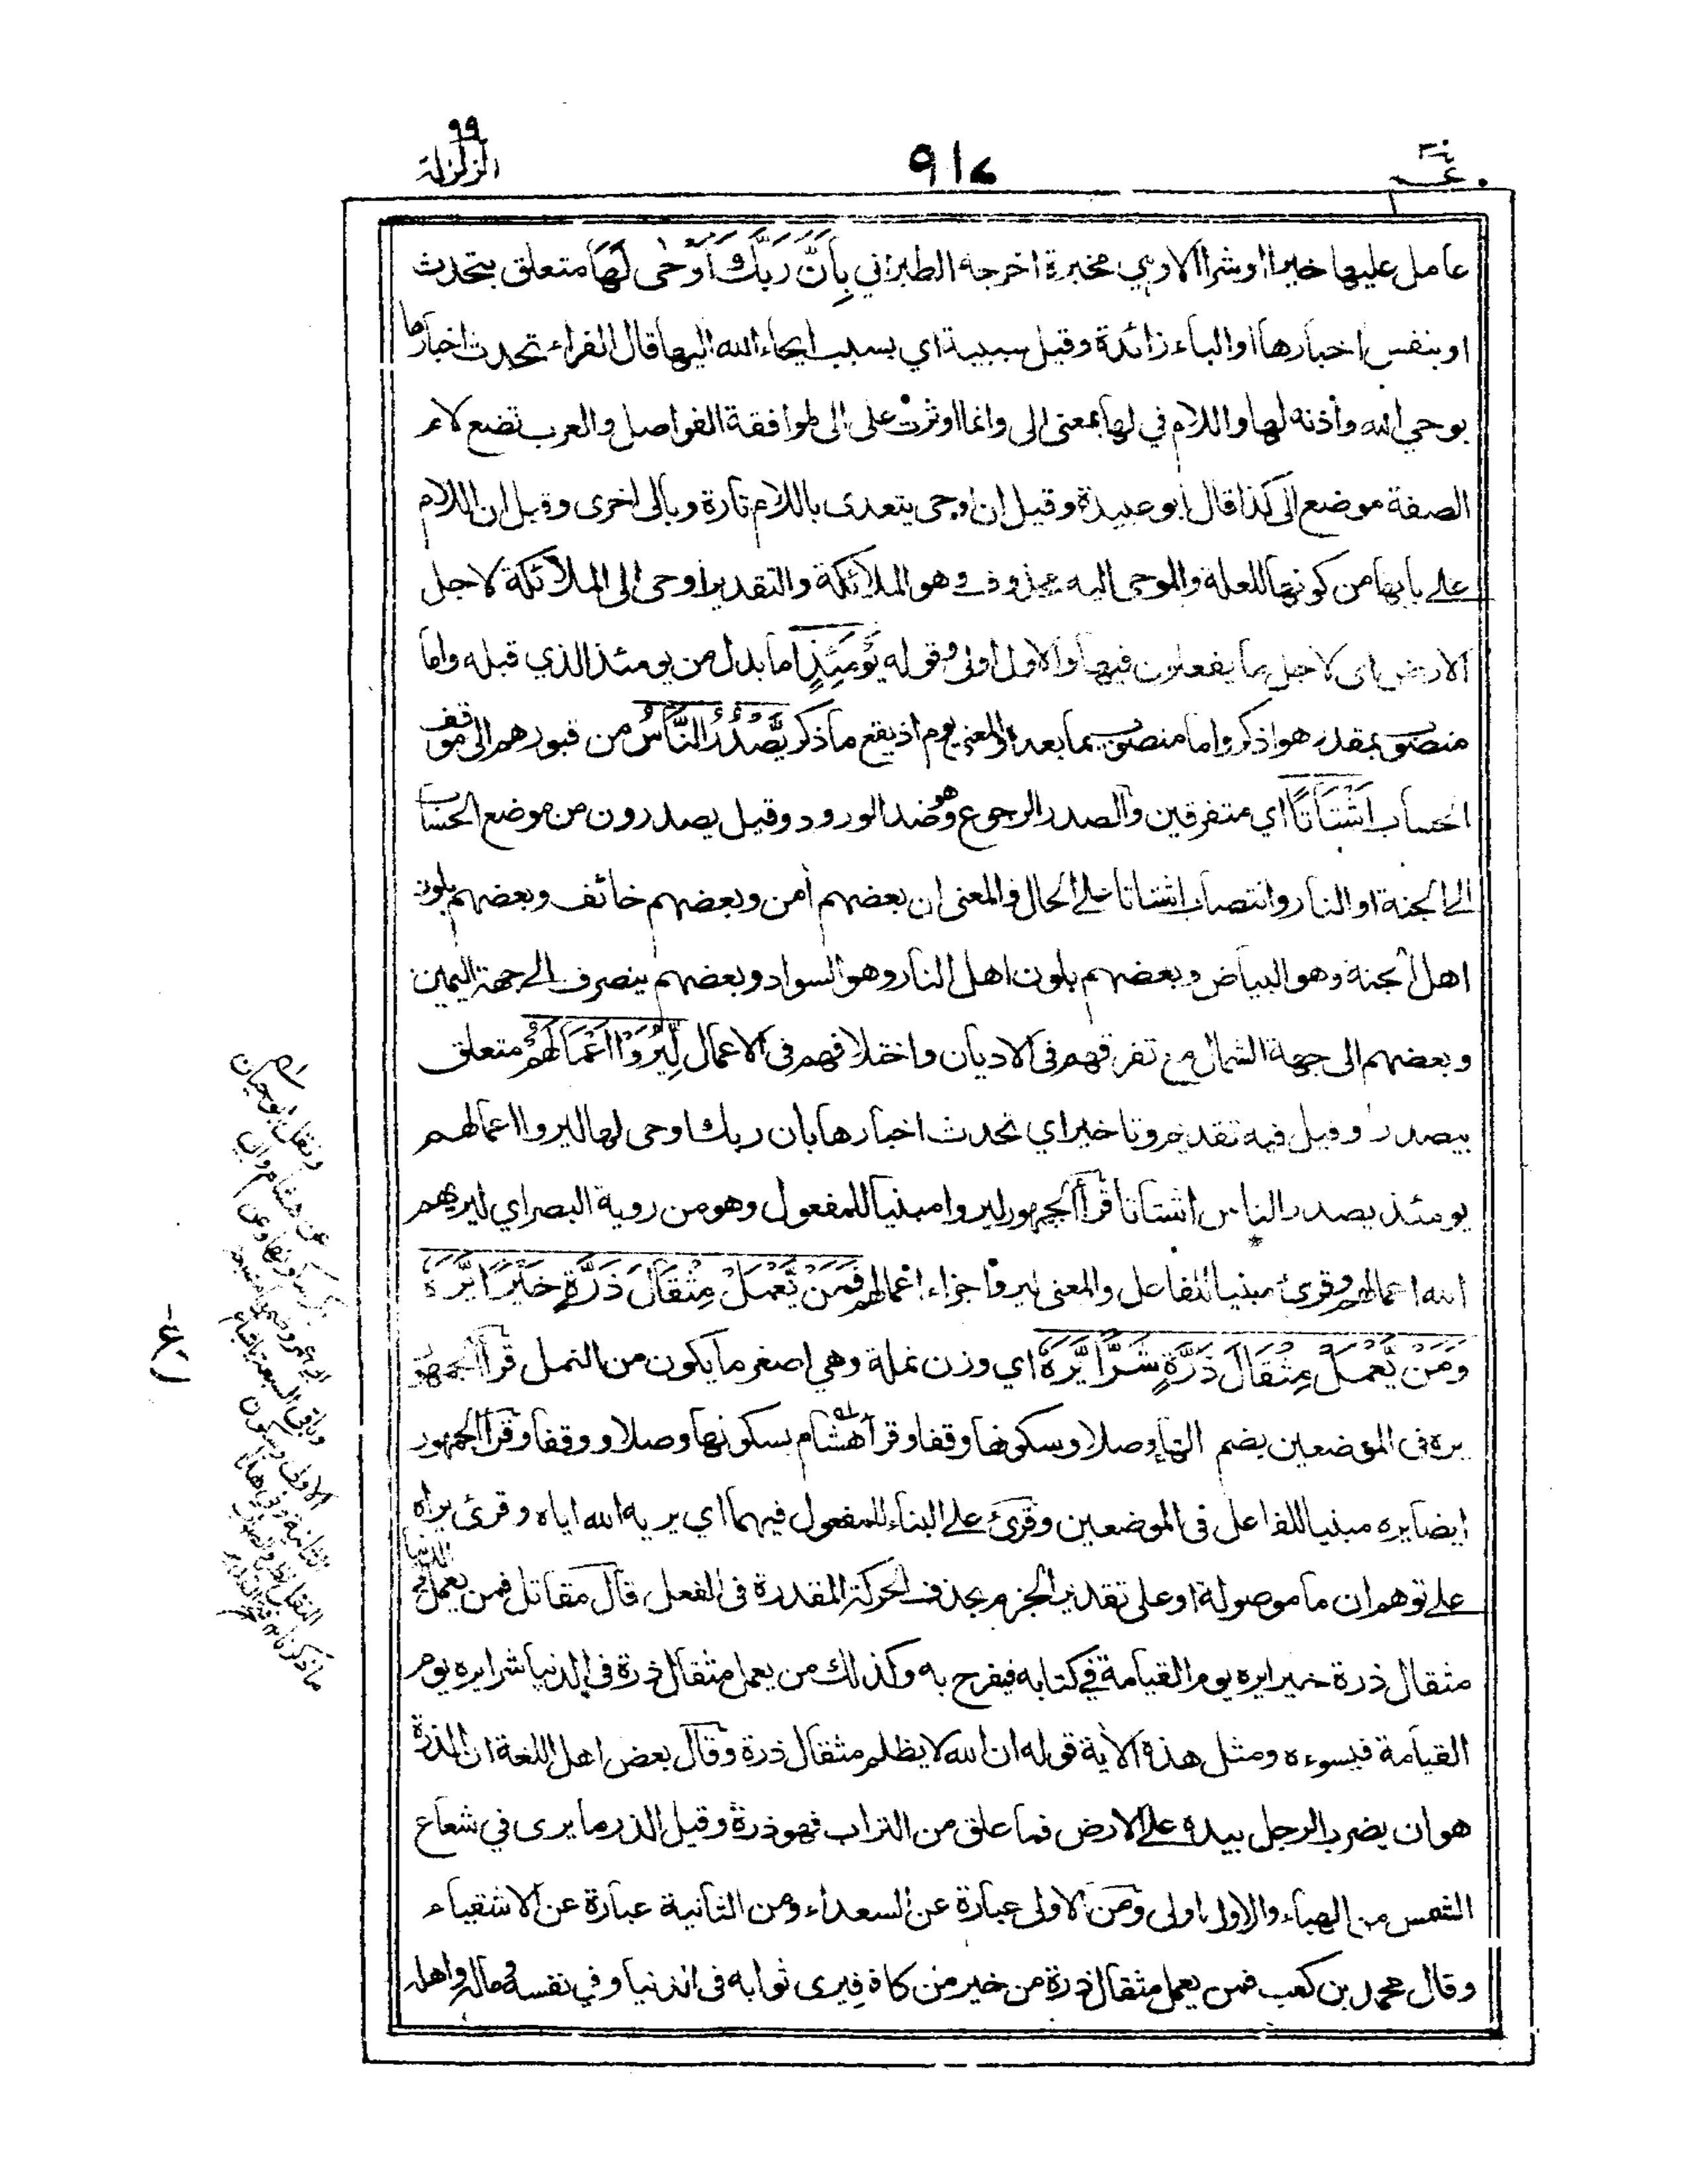 ٩٩
الزلزلة
عم
عامل عليها خيرا او شرا الا وهي مخبرة اخرجه الطبراني بِأَنَّ رَبَّكَ أَوْحٰى لَهَا متعلق بتحدث
او بنفس اخبارها او الباء زائدة وقيل سببية اي بسبب ايحاء الله اليها قال الفراء تحدث اخبارها
بوحي الله وأذنه لها واللام في لها بمعنى الى وانما اوثرت على الى لموافقة الفواصل والعرب تضع لام
الصفة موضع الى كذا قال ابو عبيدة وقيل ان اوحى يتعدى باللام تارة وبالى اخرى وقيل ان اللام
على بابها من كونها للعلة والموحى اليه محذوف وهو الملائكة والتقدير اوحى الى الملائكة لاجل
الارض اى لاجل ما يفعلون فيها والاول اولى وقوله يَوْمَئِذٍ اما بدل من يومئذ الذي قبله واما
منصوب بمقدر هو اذكر واما منصوب بما بعده والمعنى يوم اذ يقع ما ذكر يَّصْدُرُ النَّاسُ من قبورهم الى موقف
الحساب اَشْتَاتًا اي متفرقين والصدر الرجوع وهو ضد الورود وقيل يصدرون من موضع الحساب
الى الجنة او النار وانتصاب اشتاتا على الحال والمعنى ان بعضهم أمن وبعضهم خائف وبعضهم بلون
اهل الجنة وهو البياض وبعضهم بلون اهل النار وهو السواد وبعضهم ينصرف الى جهة اليمين
وبعضهم الى جهة الشمال مع تفرقهم فى الاديان واختلافهم فى الاعمال لِّيُرَوْا اَعْمَالَهُمْ متعلق
بيصدر وقيل فيه تقديم وتاخير اي تحدث اخبارها بان ربك اوحى لها ليروا اعمالهم
يومئذ يصدر الناس اشتاتا قرأ الجمهور ليروا مبنيا للمفعول وهو من روية البصر اي ليريهم
الله اعمالهم وقرئ مبنيا للفاعل والمعنى ليروا جزاء اعمالهم فَمَنْ يَّعْمَلْ مِثْقَالَ ذَرَّةٍ خَيْرًا يَّرَهٗ
وَمَنْ يَّعْمَلْ مِثْقَالَ ذَرَّةٍ شَرًّا يَّرَهٗ اي وزن نملة وهي اصغر ما يكون من النمل قرأ الجمهور
يره فى الموضعين بضم الهاء وصلا وسكونها وقفا وقرأ هشام بسكونها وصلا ووقفا وقرأ الجمهور
ايضا يره مبنيا للفاعل فى الموضعين وقرئ على البناء للمفعول فيهما اي يريه الله اياه وقرئ يراه
على توهم ان ما موصولة او على تقدير الجزم بحذف الحركة المقدرة فى الفعل قال مقاتل فمن يعمل فى الدنيا
مثقال ذرة خيرا يره يوم القيامة في كتابه فيفرح به وكذلك من يعمل مثقال ذرة فى الدنيا شرا يره يوم
القيامة فيسوءه ومثل هذه الأية قوله ان الله لا يظلم مثقال ذرة وقال بعض اهل اللغة ان الذرة
هو ان يضرب الرجل بيده على الارض فما علق من التراب فهو ذرة وقيل الذر ما يرى في شعاع
الشمس من الهباء والاول اولى ومن الاولى عبارة عن السعداء ومن الثانية عبارة عن الاشقياء
وقال محمد بن كعب فمن يعمل مثقال ذرة من خير من كافر فيرى ثوابه فى الدنيا وفي نفسه وماله واهله
ونقل ابو حيان
عن هشام وابي
وباقي السبعة باشباع
الاولى وسكون
ع